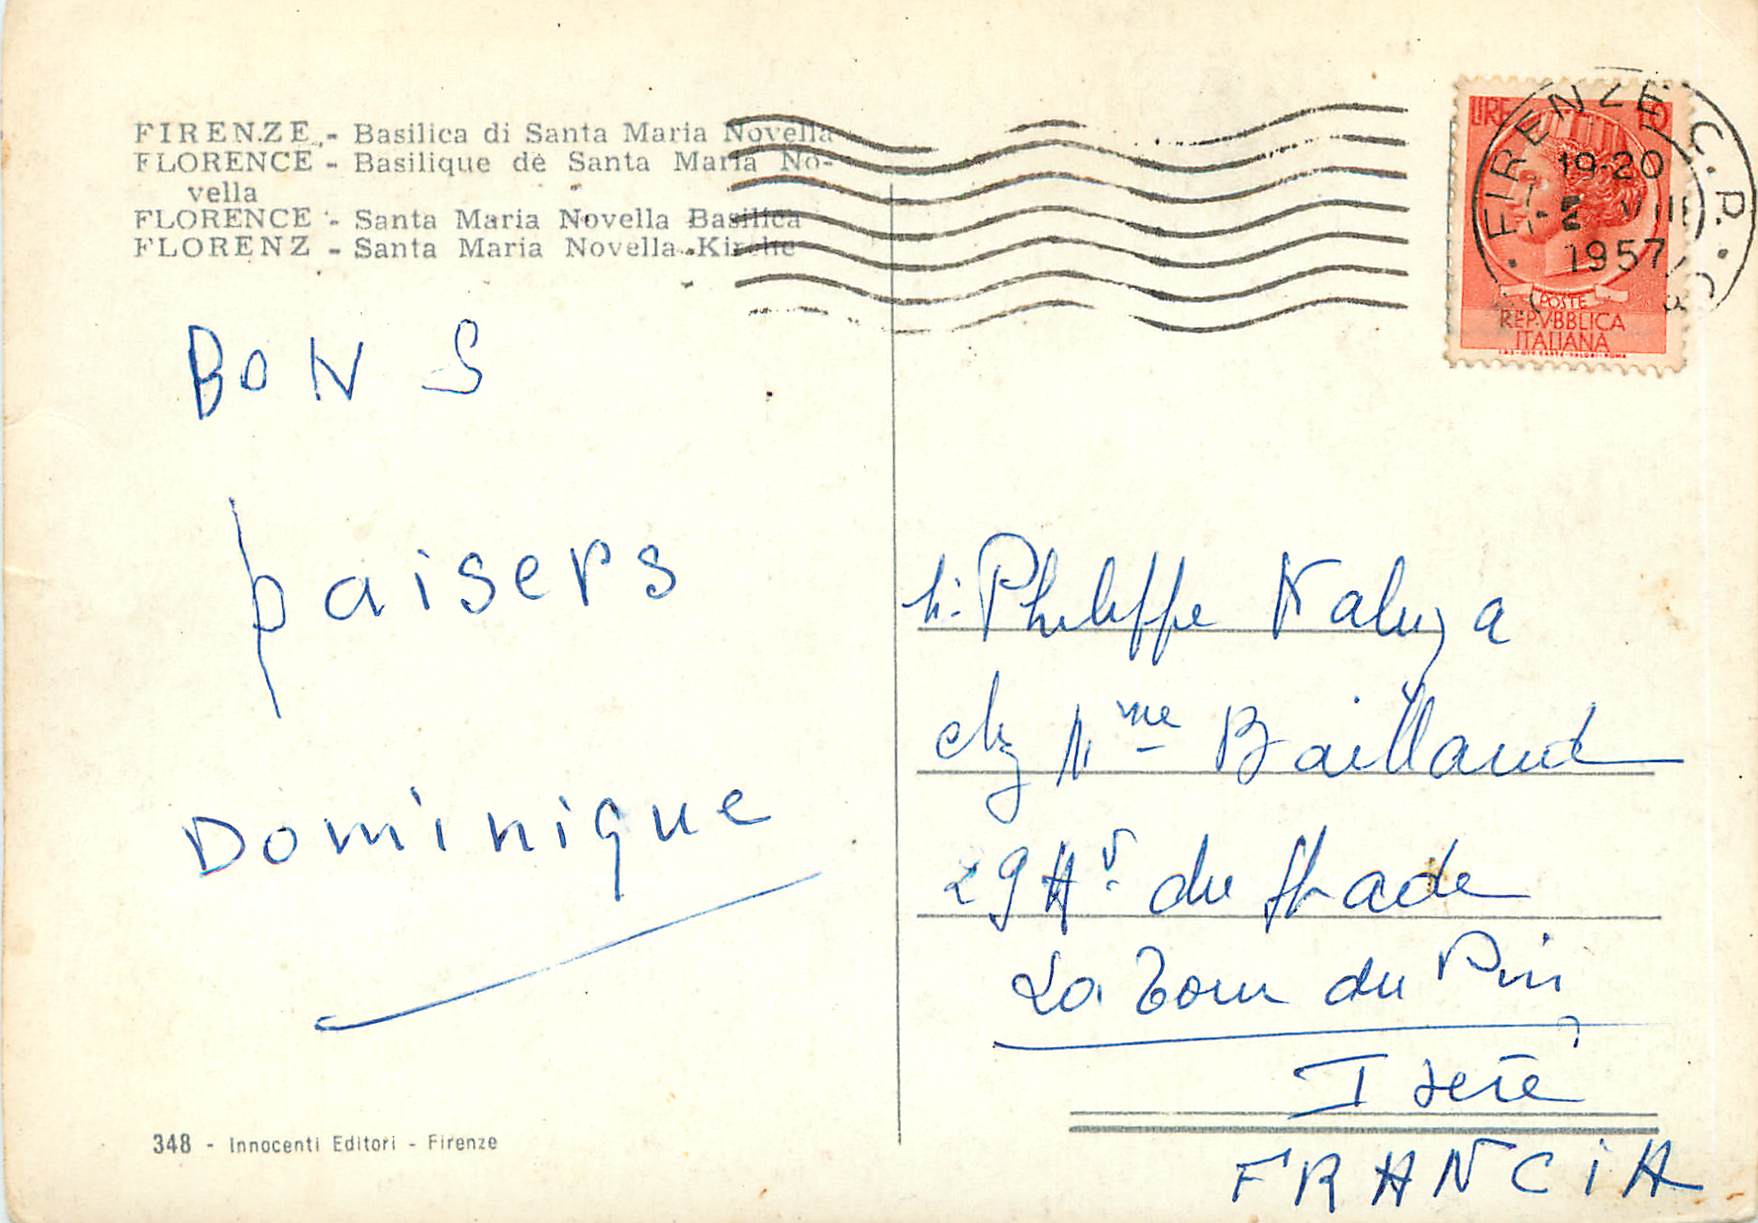 FIRENZE - Basilica di Santa Maria Novella
FLORENCE - Basilique de Santa Maria No-
vella
FLORENCE - Santa Maria Novella Basilica
FLORENZ - Santa Maria Novella-Kirche
BONS
baisers
Dominique
348 - Innocenti Editori - Firenze
LIRE 10
POSTE
REPVBBLICA
ITALIANA
FIRENZE C.P.
19-20
VIII
1957
Philippe Kaluza
chez Mme Baillaud
29 Av. du Stade
La Tour du Pin
Isère
FRANCIA